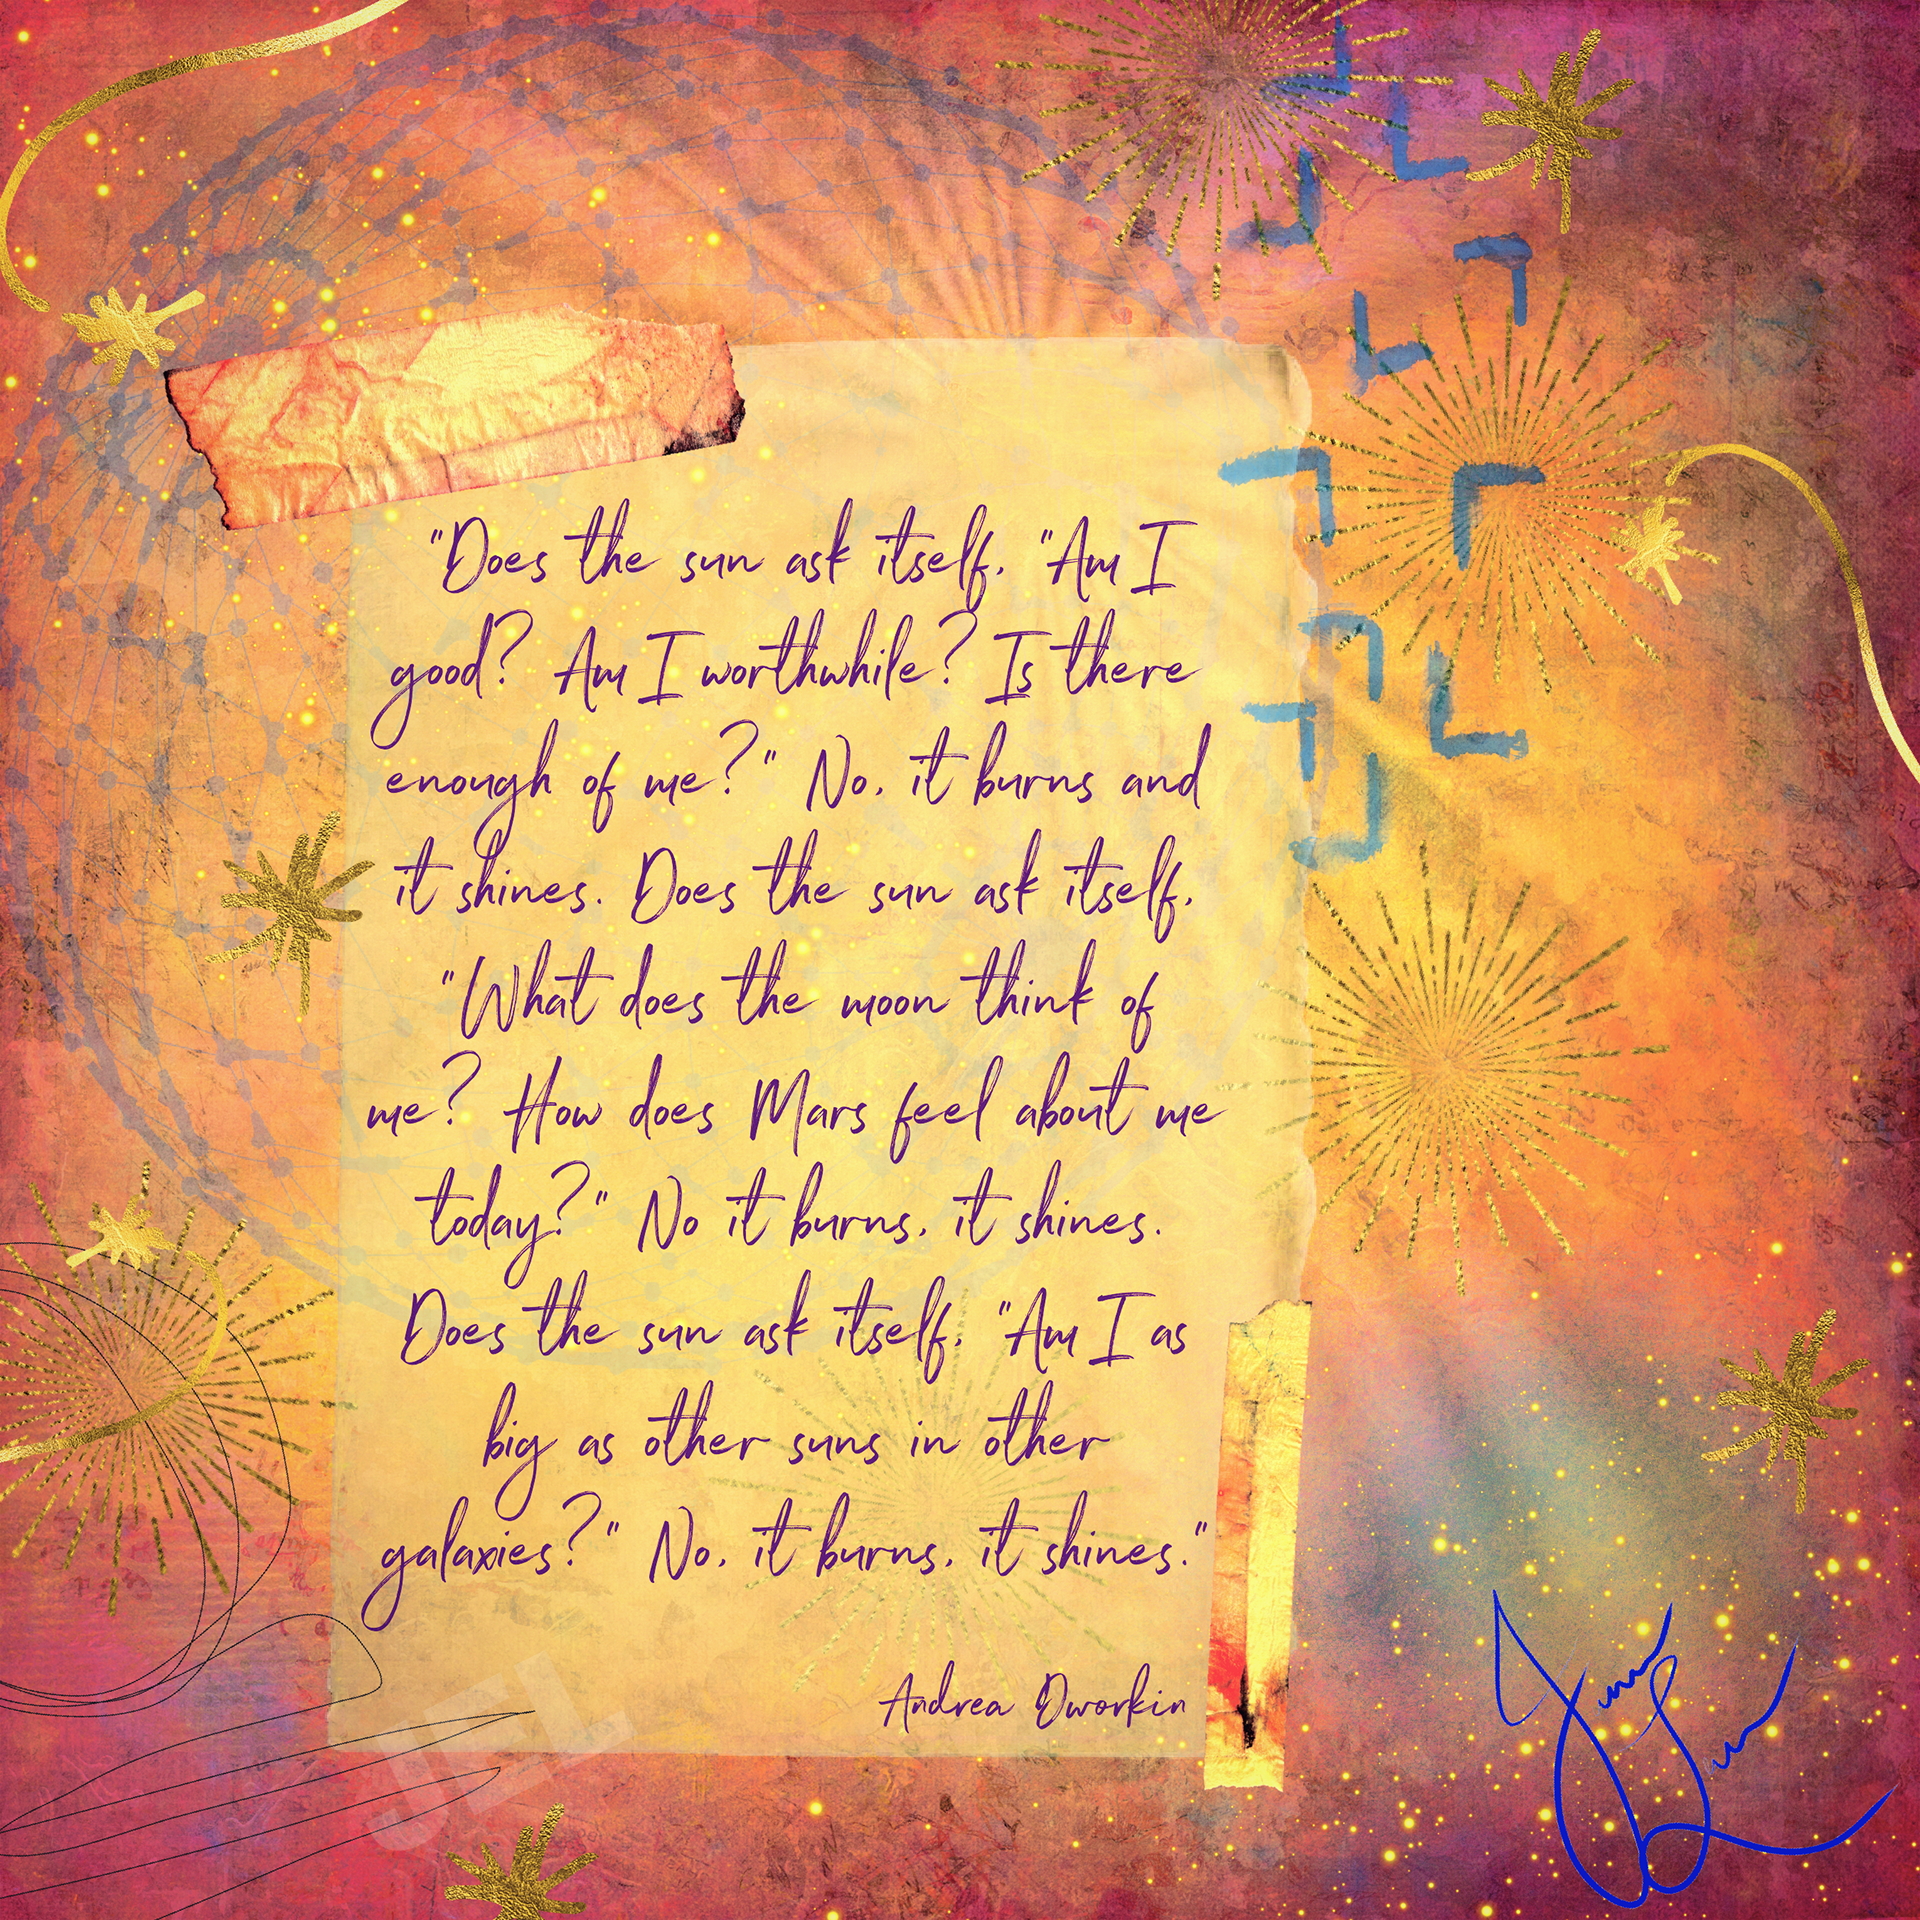 "Does the sun ask itself, "Am I
good? Am I worthwhile? Is there
enough of me?" No, it burns and
it shines. Does the sun ask itself,
"What does the moon think of
me? How does Mars feel about me
today?" No it burns, it shines.
Does the sun ask itself, "Am I as
big as other suns in other
galaxies?" No, it burns, it shines."
Andrea Dworkin
JEL